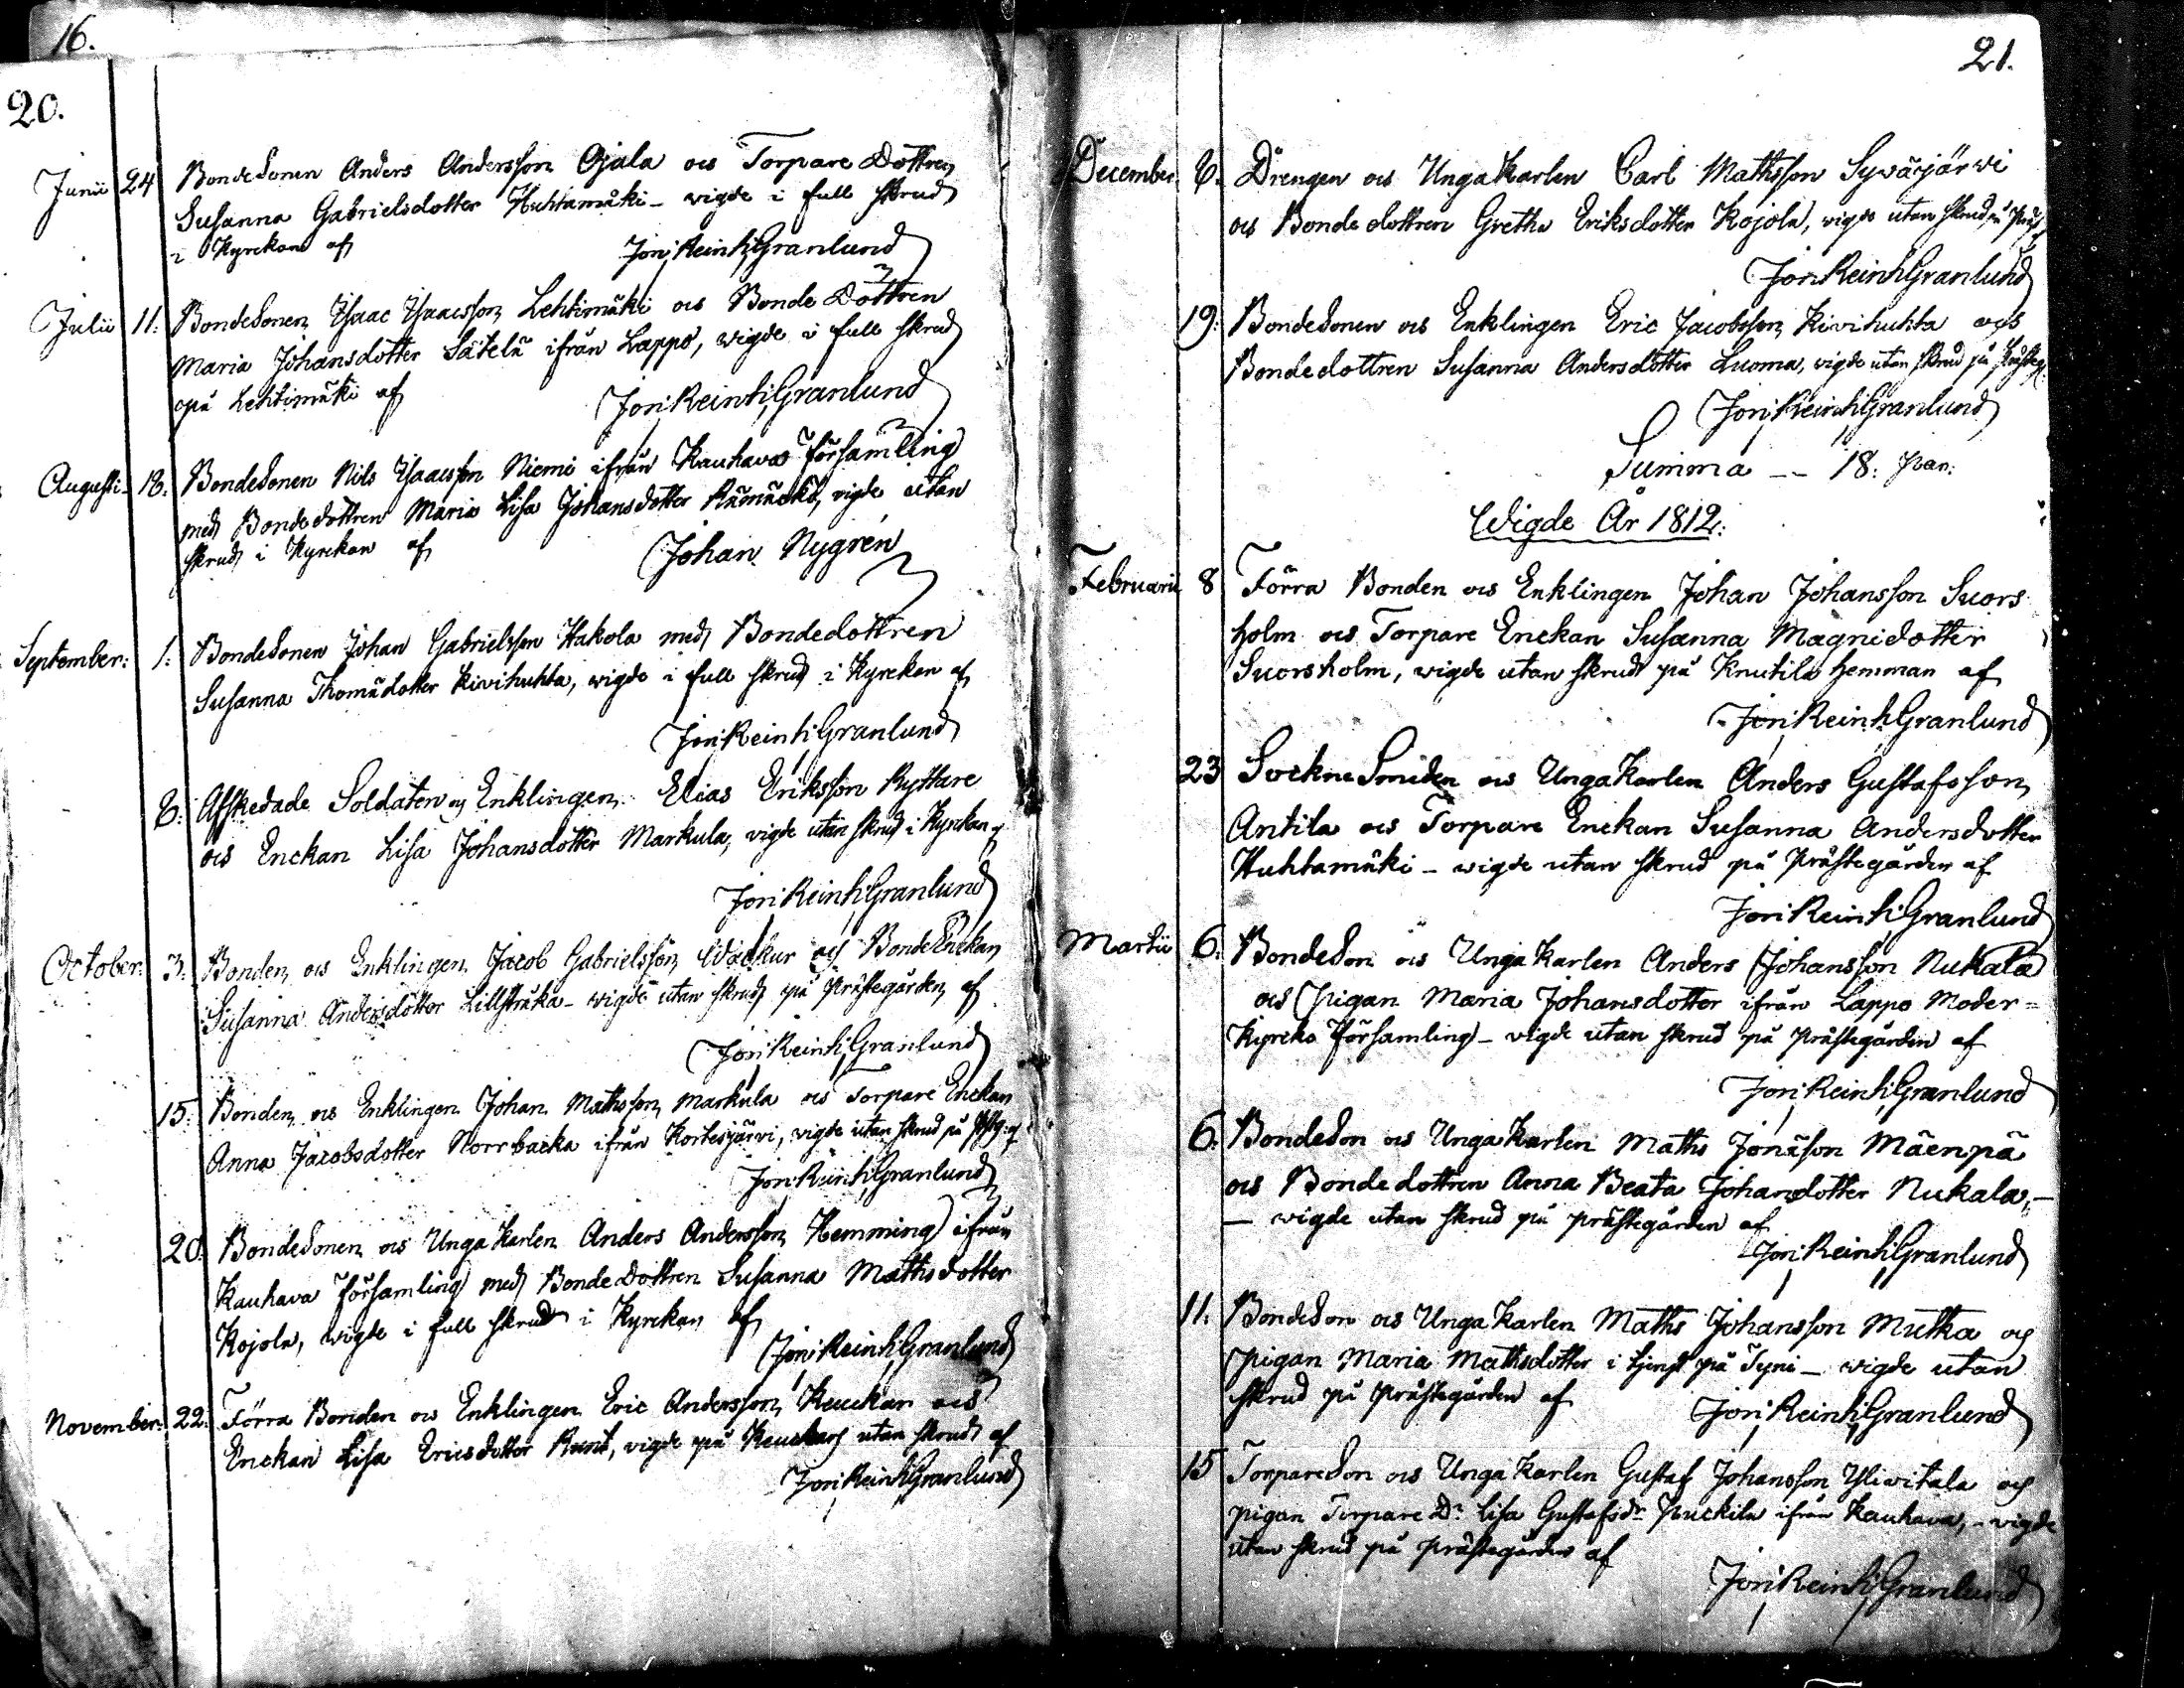 16.
20.
Junii 24 Bondesonen Anders Andersson Ojala ocs Torpare Dottren
Susanna Gabrielsdotter Huhtamäki - vigde i full skrud
i Kyrckan af Joh: Reinh: Granlund
Julii 11: Bondesonen Isaac Isaacsson Lehtimäki ocs Bonde Dottren
Maria Johansdotter Sätelä ifrån Lappo, wigde i full skrud
på Lehtimäki af Joh: Reinh: Granlund
Augusti 18. Bondesonen Nils Isaacsson Niemi ifrån Kauhava Församling
med Bondedottren Maria Lisa Johansdotter vigde utan
skrud i Kyrckan af Johan Nygrén
September: 1: Bondesonen Johan Gabrielsson Hakola med Bondedottren
Susanna Thomädotter Kivihuhta, wigde i full skrud i Kyrckan af
Joh: Reinh: Granlund
8: Afskedade Soldaten och Enklingen Elias Eriksson Ryttare
ocs Enckan Lisa Johansdotter Markula, vigde utan skrud i Kyrckan af
Joh: Reinh: Granlund
October: 3: Bonden ocs Enklingen Jacob Gabrielsson Wackur och Bonde Enckan
Susanna Andersdotter Lillstråka - wigde utan skrud på Prästegården af
Joh: Reinh: Granlund
15: Bonden ocs Enklingen Johan Mathsson Markula ocs Torpare Enckan
Anna Jacobsdotter Norrbacka ifrån Kortesjärvi, vigde utan skrud på Pstg: af
Joh: Reinh: Granlund
20: Bondesonen ocs Unga Karlen Anders Andersson Hemming ifrån
Kauhava Församling med Bonde Dottren Susanna Mathsdotter
Kojola, wigde i full skrud i Kyrckan af
Joh: Reinh: Granlund
November: 22: Förra Bonden ocs Enklingen Eric Andersson Keuckan ocs
Enckan Lisa Ericsdotter vigde på utan skrud af
Joh: Reinh: Granlund
21.
December 8. Drengen ocs Unga Karlen Carl Mathsson Sywäjärwi
ocs Bondedottren Gretha Eriksdotter Kojola, vigde utan skrud
Joh: Reinh: Granlund
19: Bondesonen ocs Enklingen Eric Jacobsson Kivihuhta ocs
Bondedottren Susanna Andersdotter Luoma, vigde utan skrud på Prästeg:
Joh: Reinh: Granlund
Summa -- 18: Par:
Wigde År 1812:
Februarii 8 Förra Bonden ocs Enklingen Johan Johansson Suors
holm ocs Torpare Enckan Susanna Magnidotter
Suorsholm, wigde utan skrud på Knutila Hemman af
Joh: Reinh: Granlund
23 Sockne Smeden ocs Unga Karlen Anders Gustafsson
Antila ocs Torpare Enckan Susanna Andersdotter
Huhtamäki - wigde utan skrud på Prästegården af
Joh: Reinh: Granlund
Martii 6: Bondeson ocs Unga Karlen Anders Johansson Nukala
ocs Pigan Maria Johansdotter ifrån Lappo Moder=
Kyrcko Församling - vigde utan skrud på Prästegården af
Joh: Reinh: Granlund
6: Bondeson ocs Unga Karlen Maths Jonäson Mäenpä
ocs Bondedottren Anna Beata Johansdotter Nukala,-
- wigde utan skrud på prästegården af
Joh: Reinh: Granlund
11. Bondeson ocs Unga Karlen Maths Johansson Mutka och
Pigan Maria Mathsdotter i tjenst på Tyni - wigde utan
skrud på Prästegården af Joh: Reinh: Granlund
15 Torpareson ocs Unga Karlen Gustaf Johansson Yliwitala och
pigan Torpare Dr Lisa Gustafsdr Puckila ifrån Kauhava, - vigde
utan skrud på Prästegården af
Joh: Reinh: Granlund